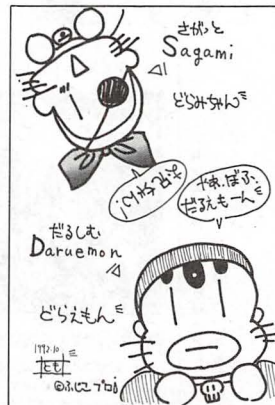 さがっと
Sagami
どらみちゃん
やあ、ぼぶ、
だるえもーん
だるしむ
Daruemon
どらえもん
1992.10
とも
©ふじこプロ